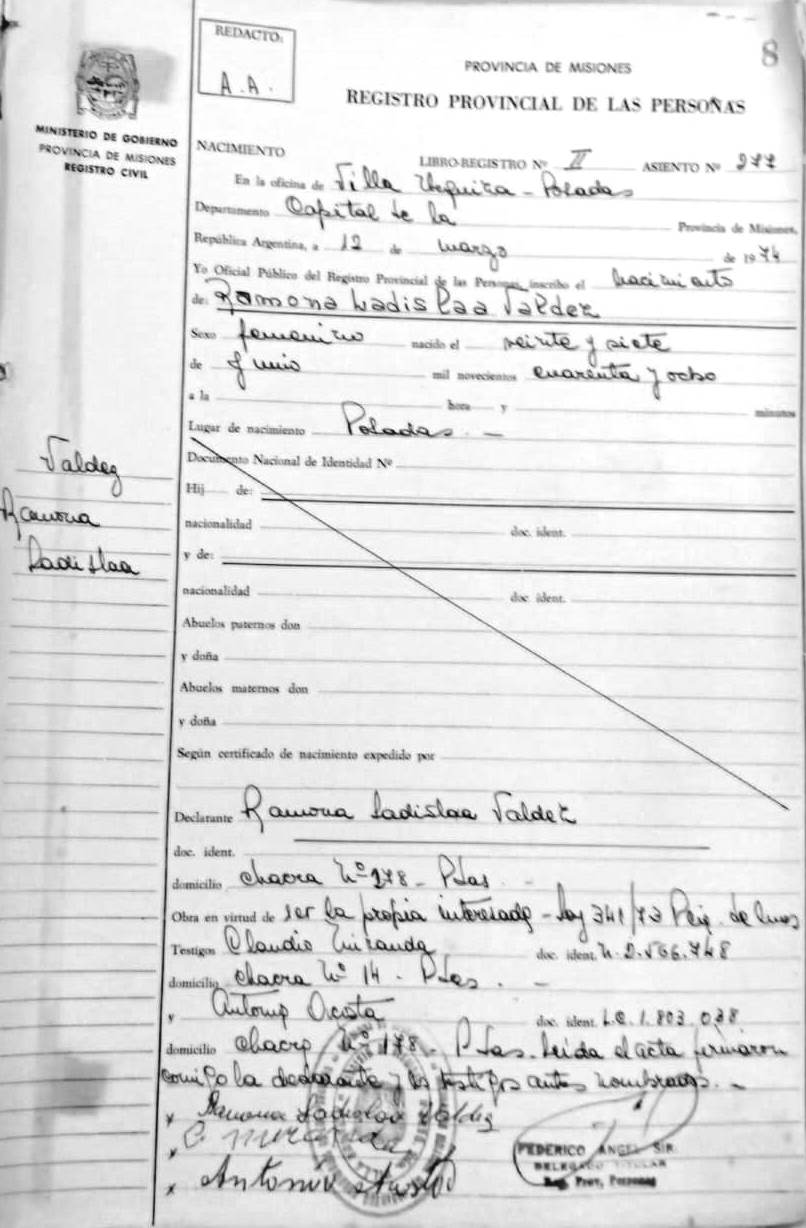 8
REDACTO:
A.A.
MINISTERIO DE GOBIERNO
PROVINCIA DE MISIONES
REGISTRO CIVIL
PROVINCIA DE MISIONES
REGISTRO PROVINCIAL DE LAS PERSONAS
NACIMIENTO LIBRO-REGISTRO Nº II ASIENTO Nº 277
En la oficina de Villa Urquiza - Posadas
Departamento Capital de la Provincia de Misiones,
República Argentina, a 12 de marzo de 1974
Yo Oficial Público del Registro Provincial de las Personas, inscribo el nacimiento
de: Ramona Ladislaa Valdez
Sexo femenino nacido el veinte y siete
de Junio mil novecientos cuarenta y ocho
a la hora y minutos
Lugar de nacimiento Posadas. -
Documento Nacional de Identidad Nº
Hij de:
nacionalidad doc. ident.
y de:
nacionalidad doc. ident.
Abuelos paternos don
y doña
Abuelos maternos don
y doña
Según certificado de nacimiento expedido por
Valdez
Ramona
Ladislaa
Declarante Ramona Ladislaa Valdez
doc. ident.
domicilio chacra Nº 178 - Pdas. -
Obra en virtud de ser la propia interesada - Ley 341/73
Testigos Claudio Miranda doc. ident.
domicilio chacra Nº 14 - Pdas. -
y Antonio Acosta doc. ident. 1.803.038
domicilio chacra Nº 178 - Pdas. Leida el acta firmaron
conmigo la declarante y los testigos antes nombrados. -
x Ramona Ladislaa Valdez
x C Miranda
x Antonio
FEDERICO ANGEL SIR
DELEGADO TITULAR
Reg. Prov. Personas